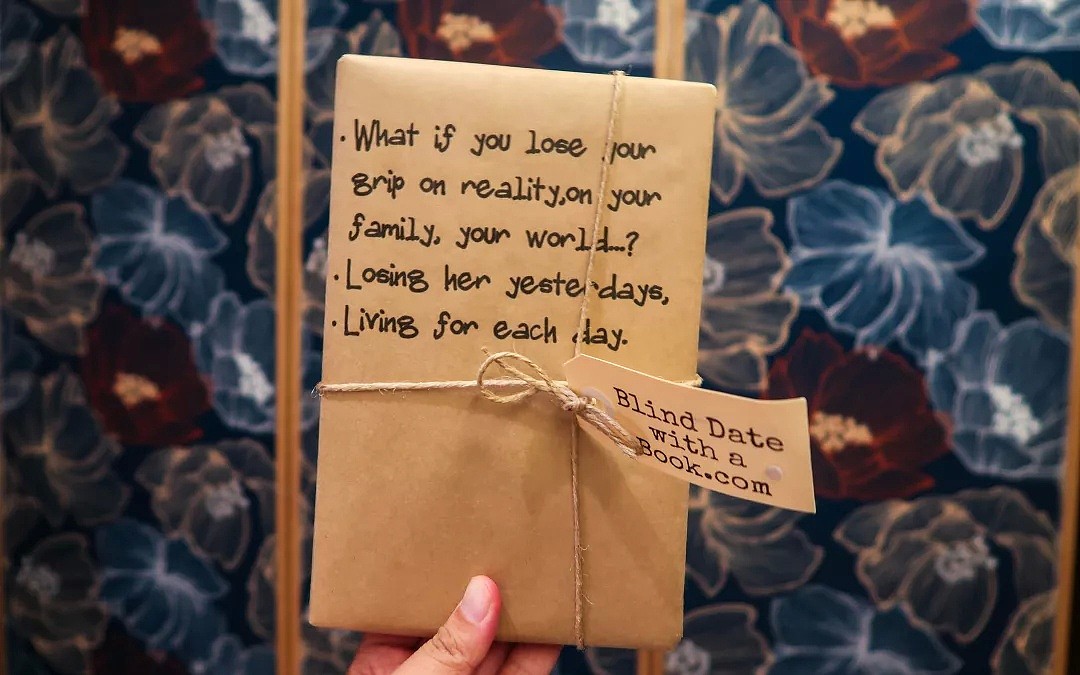 · What if you lose your
grip on reality,on your
family, your world...?
· Losing her yesterdays,
· Living for each day.
Blind Date
with a
Book.com